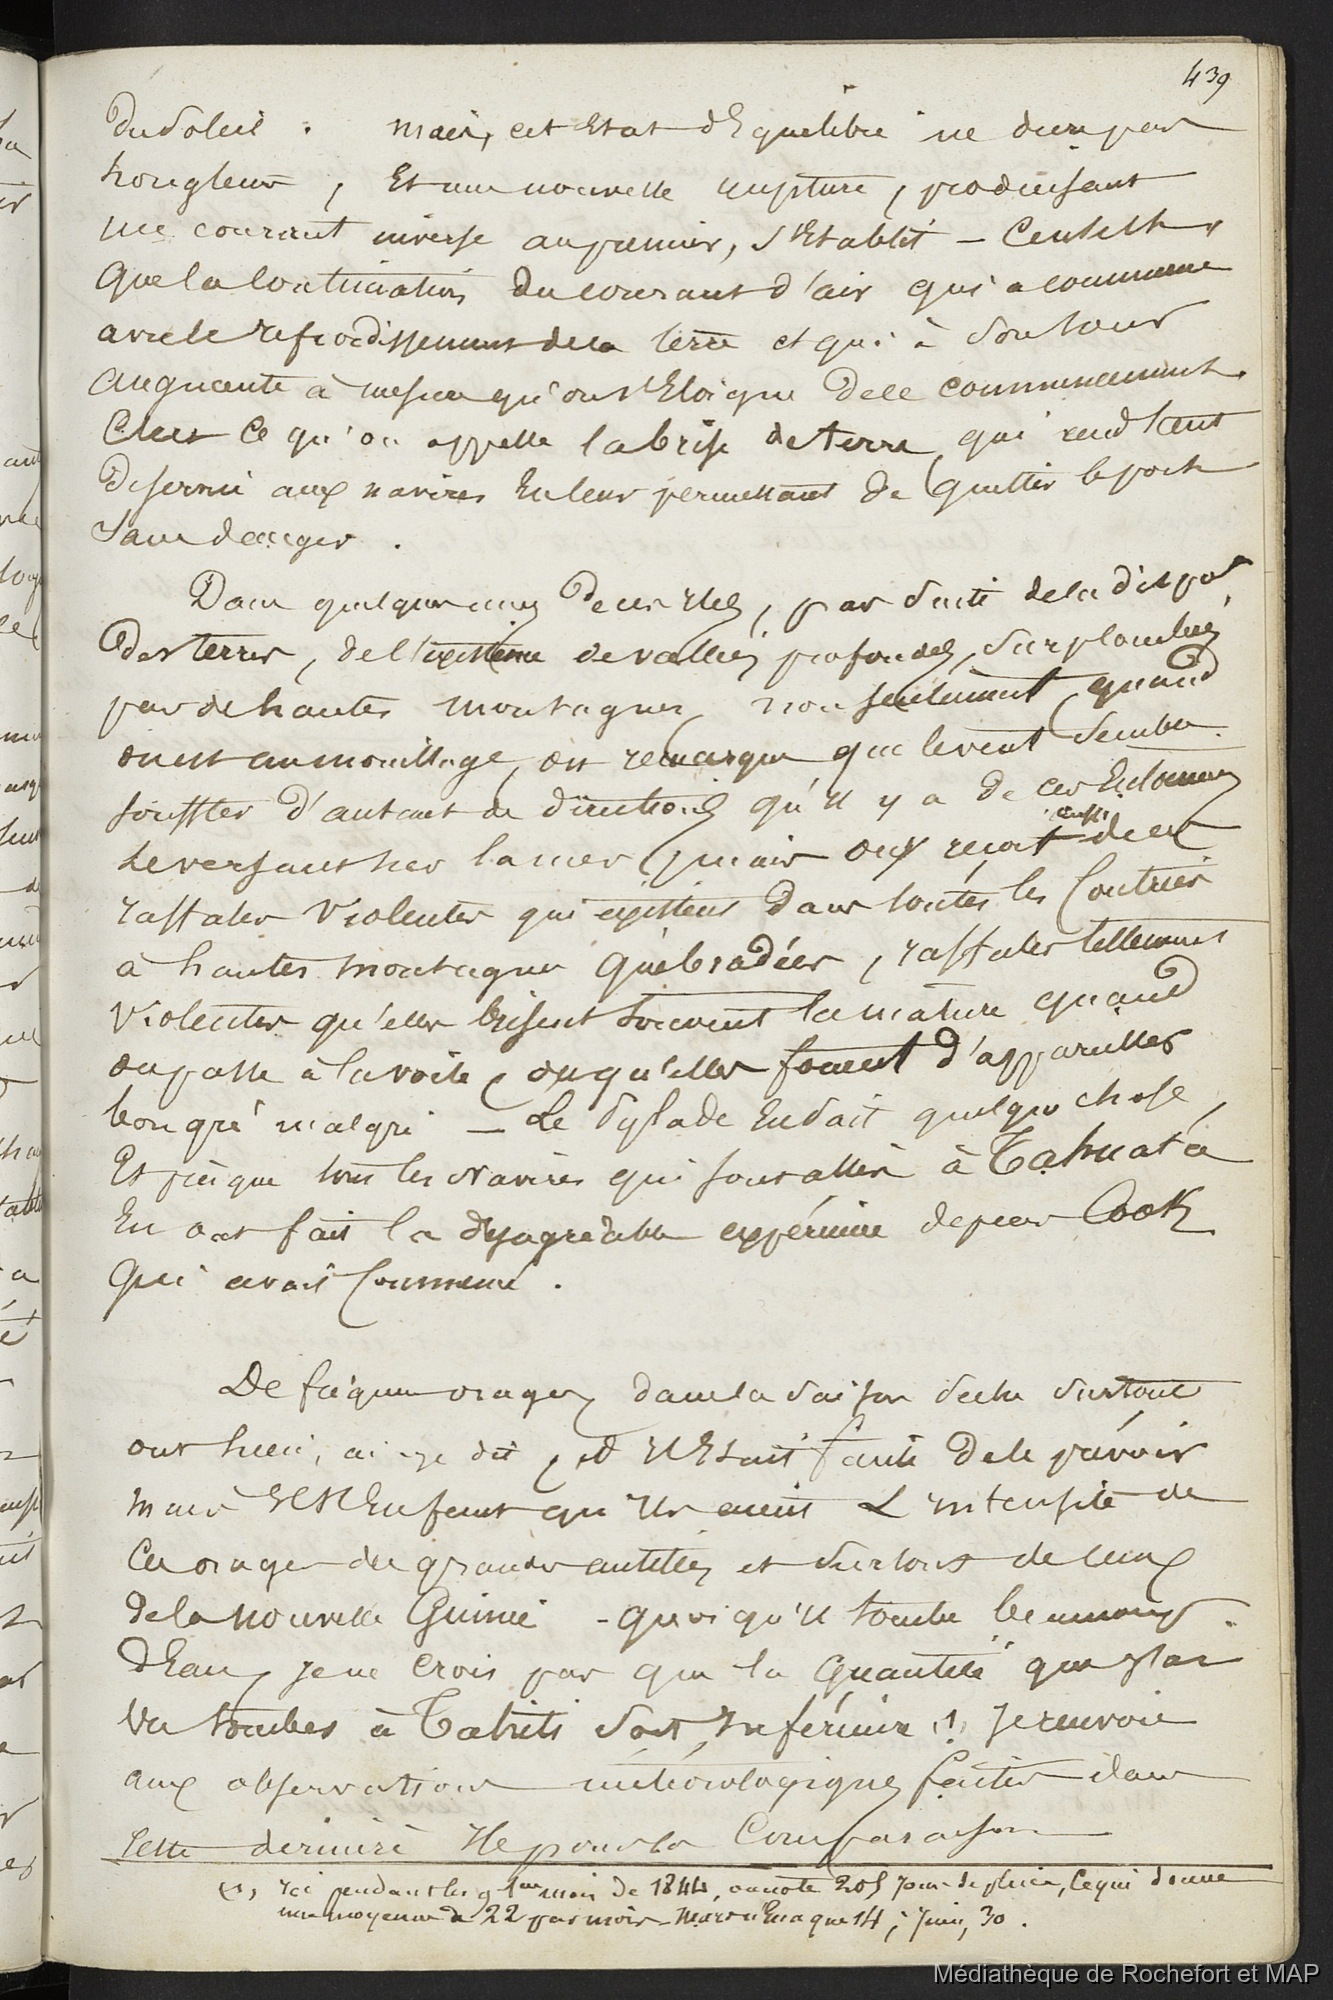 439
du Soleil. mais, cet Etat d'Equilibre ne dure pas
longtems, Et une nouvelle rupture, produisant
un courant inverse au premier, s'Etablit — Ce n'est
que la Continuation du courant d'air qui a commencé
avec le refroidissement de la terre et qui à Son tour
augmente à mesure qu'on s'Eloigne de ce commencement.
C'est ce qu'on appelle la brise de terre qui rend tant
de service aux navires En leur permettant de quitter le port
sans danger.
Dans quelques unes de ces Iles, par Suite de la dispon
des terres, de l'existence de vallées profondes, Surplombées
par de hautes montagnes, non seulement quand
on est au mouillage, on remarque que le vent Semble
souffler d'autant de directions qu'il y a de ces
se versant vers la mer, mais on y reçoit aussi de ces
raffales Violentes qui existent dans toutes les Contrées
à hautes montagnes Quebradées, raffales tellement
Violentes qu'elles brisent souvent la mature quand
on passe à la voile, ou qu'elles forcent d'appareiller
bon gré malgré — Le Pylade En Sait quelque chose,
Et presque tous les Navires qui sont allés à Tahuata
En ont fait la désagréable expérience depuis Cook
qui avait Commencé.
De fréquens orages, dans la Saison Seche Surtout
ont lieu, ai-je dit, et Il Etait facile de le prévoir
mais Il S'En faut qu'Ils aient L'intensité de
Ces orages des grandes antilles et Surtout de ceux
de la nouvelle Guinée - quoiqu'il tombe beaucoup
d'Eau, je ne crois pas que la Quantité que j'ai
Vu tomber à Tahiti Soit Inférieure (1) Je renvoie
aux observations météorologiques faites dans
cette derniere Ile pour la Comparaison
(1) Ici pendant les 9 1ers mois de 1844, on note 205 jours de pluie, Ce qui donne
une moyenne de 22 par mois — Mars n'En a que 14; Juin, 30.
Médiathèque de Rochefort et MAP